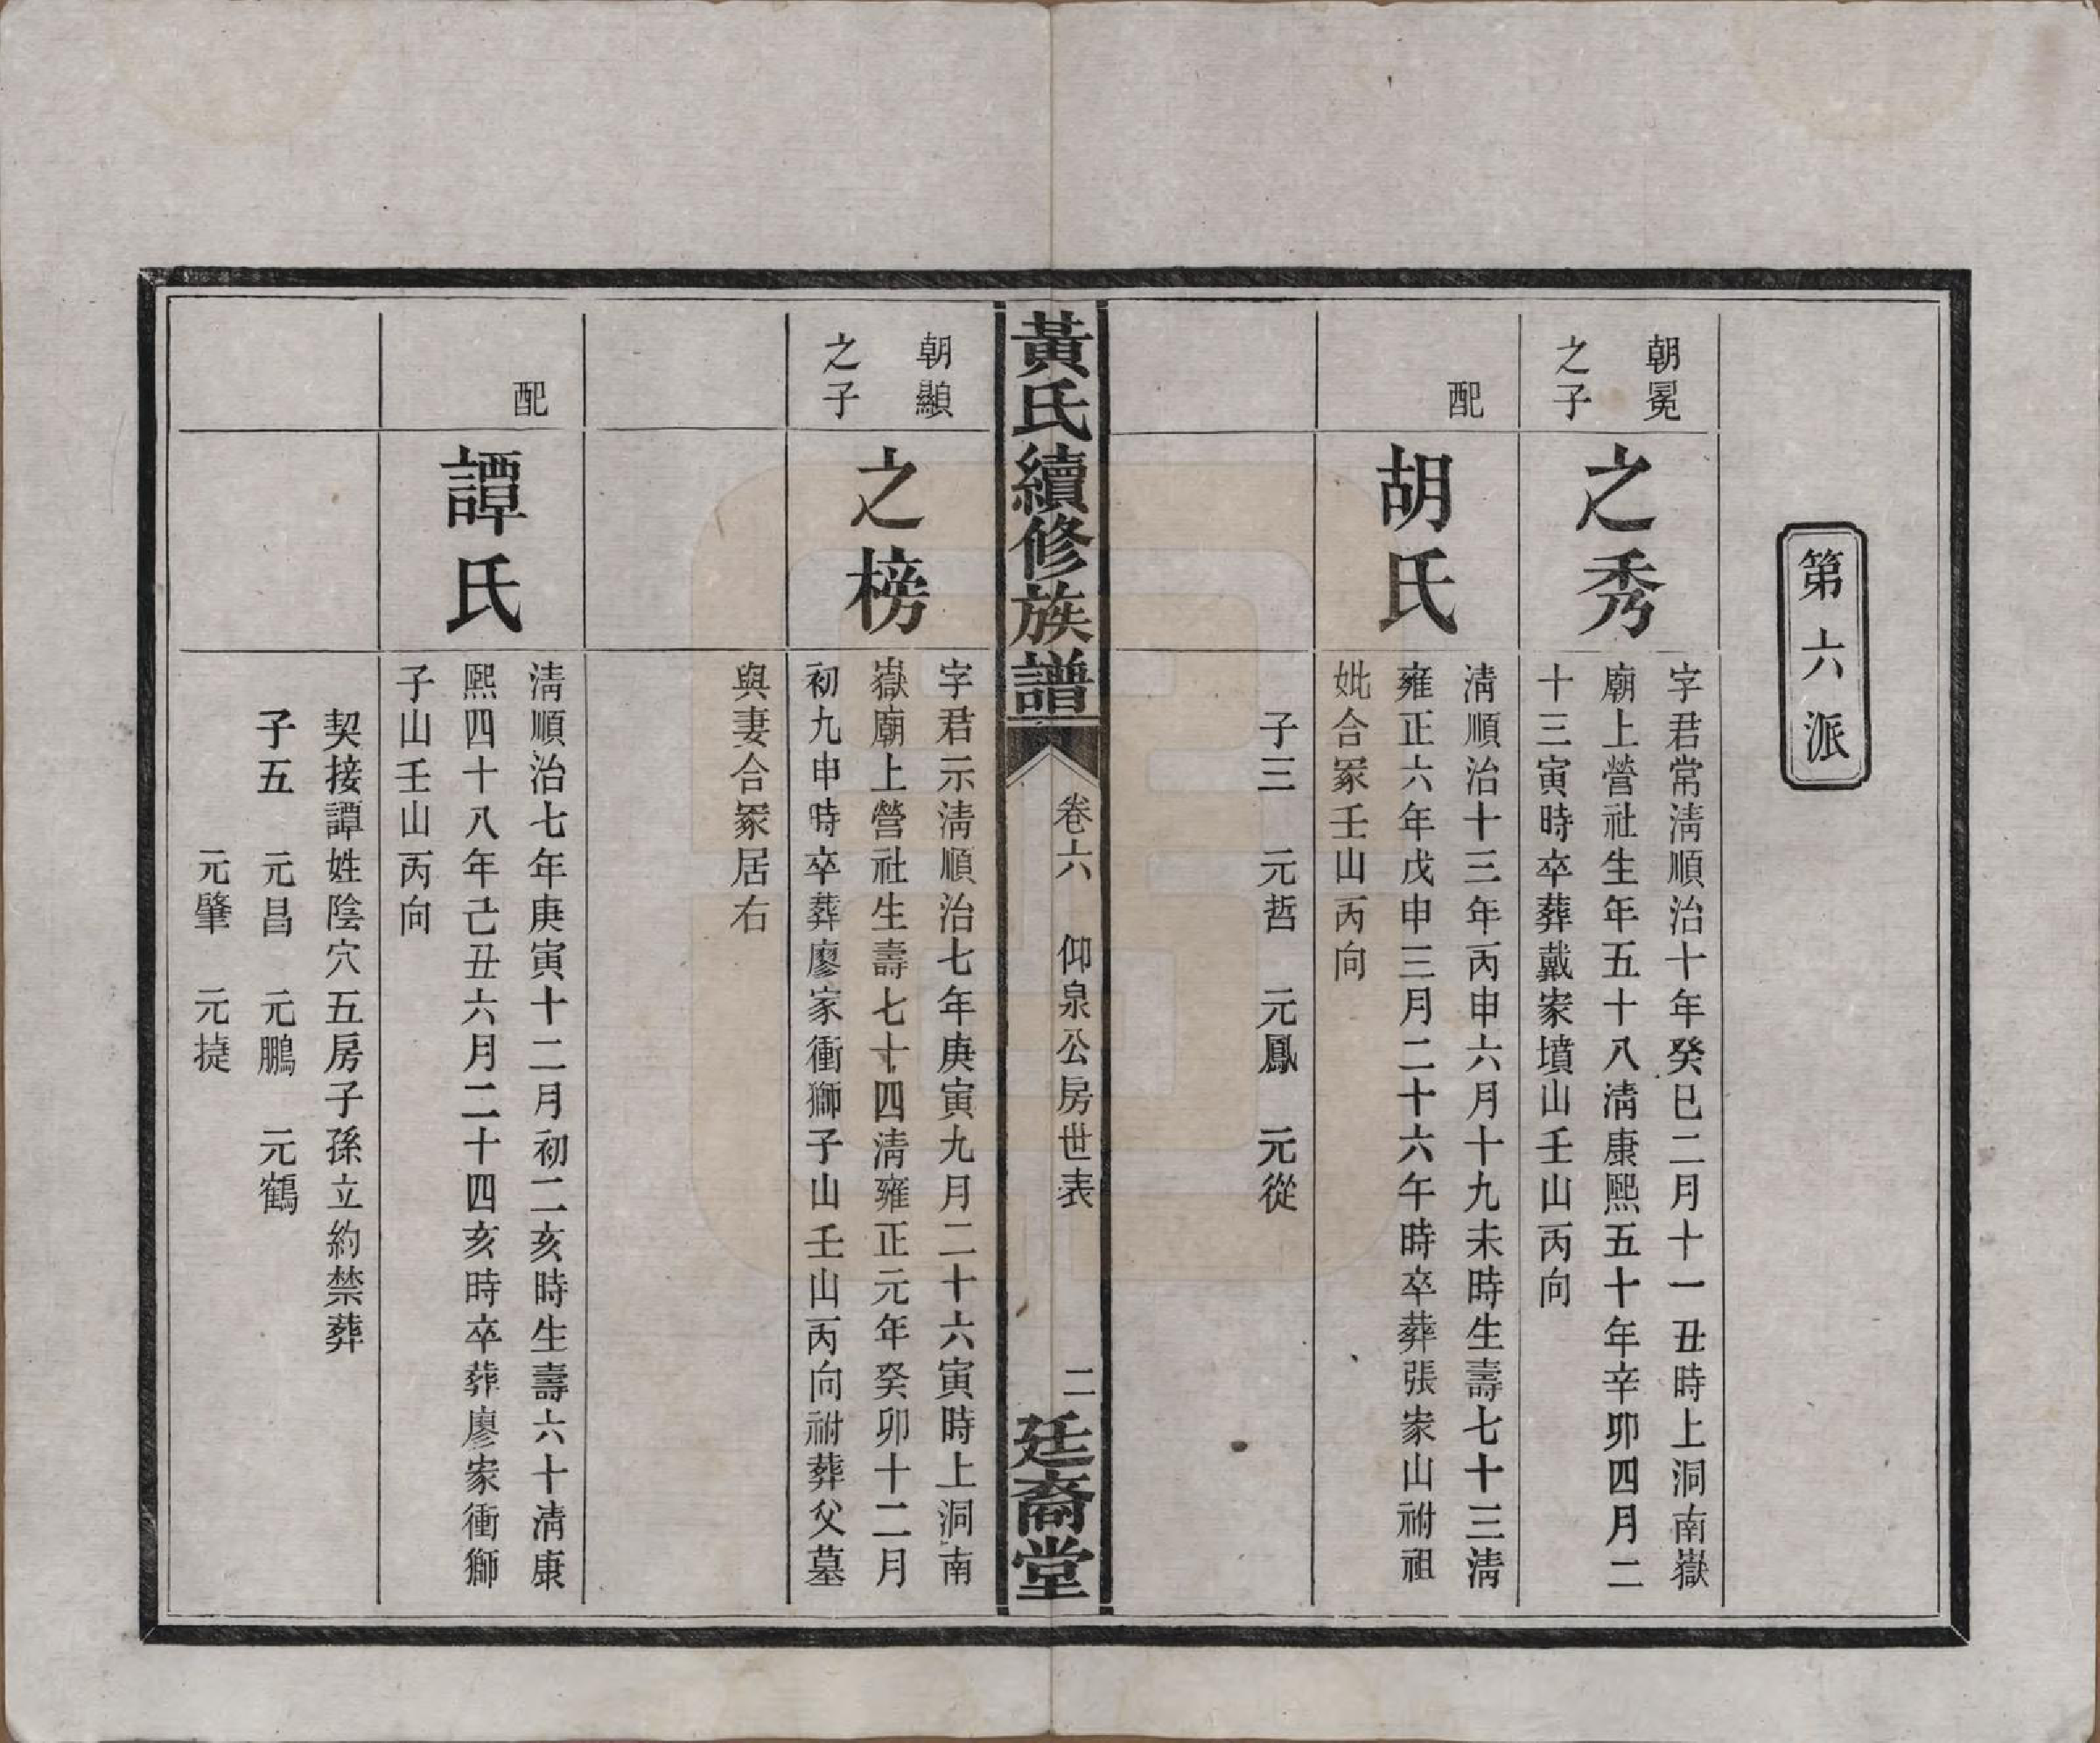 第六派
朝冕
之子
之秀
字君常淸順治十年癸巳二月十一丑時上洞南嶽
廟上營社生年五十八淸康熙五十年辛卯四月二
十三寅時卒葬戴家墳山壬山丙向
配
胡氏
淸順治十三年丙申六月十九未時生壽七十三淸
雍正六年戊申三月二十六午時卒葬張家山祔祖
妣合冢壬山丙向
子三　元哲　元鳳　元從
黃氏續修族譜
卷六　仰泉公房世表
二
廷裔堂
朝顯
之子
之榜
字君示淸順治七年庚寅九月二十六寅時上洞南
嶽廟上營社生壽七十四淸雍正元年癸卯十二月
初九申時卒葬廖家衝獅子山壬山丙向祔葬父墓
與妻合冢居右
配
譚氏
淸順治七年庚寅十二月初二亥時生壽六十淸康
熙四十八年己丑六月二十四亥時卒葬廖家衝獅
子山壬山丙向
契接譚姓陰穴五房子孫立約禁葬
子五　元昌　元鵬　元鶴
元肇　元㨗